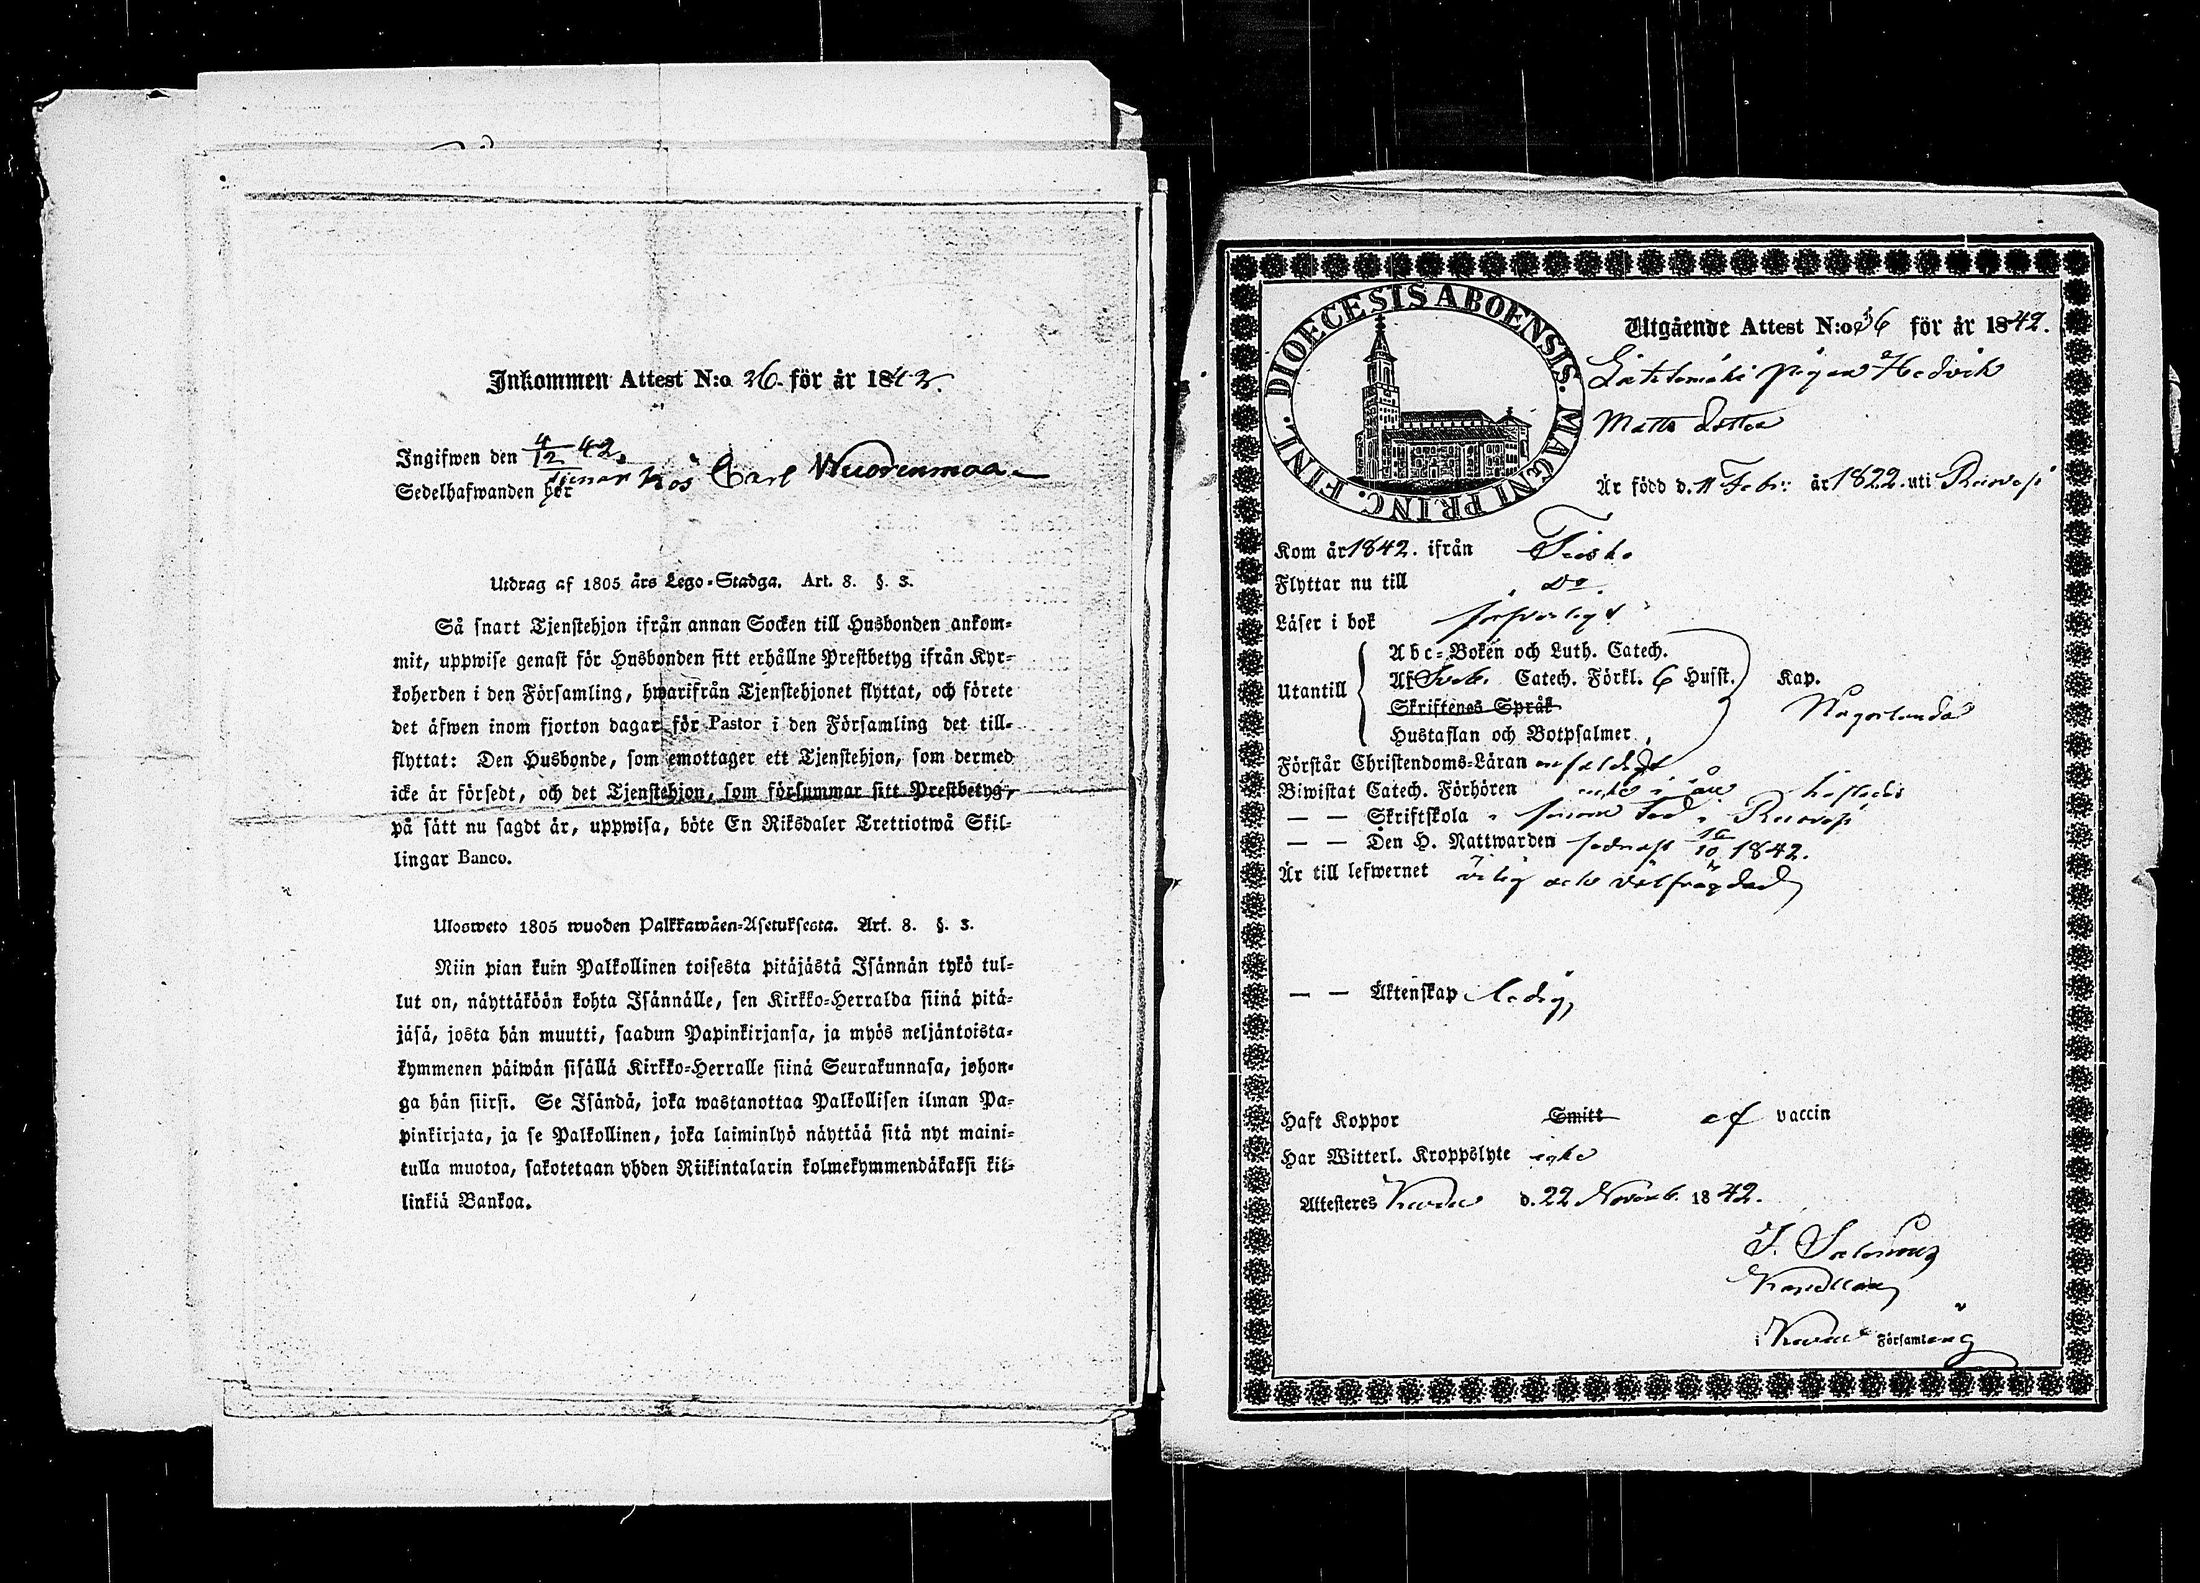 Inkommen Attest N:o 26. för år 1842.
Ingifwen den 4/12 42.
Sedelhafwanden bör tjenar hos Carl Wuorenmaa
Utdrag af 1805 års Lego-Stadga. Art. 8. §. 3.
Så snart Tjenstehjon ifrån annan Socken till Husbonden ankom-
mit, uppwise genast för Husbonden sitt erhållne Prestbetyg ifrån Kyr-
koherden i den Församling, hwarifrån Tjenstehjonet flyttat, och förete
det äfwen inom fjorton dagar för Pastor i den Församling det till-
flyttat: Den Husbonde, som emottager ett Tjenstehjon, som dermed
icke är försedt, och det Tjenstehjon, som försummar sitt Prestbetyg,
på sätt nu sagdt är, uppwisa, böte En Riksdaler Trettiotwå Skil-
lingar Banco.
Ulosweto 1805 wuoden Palkkawäen-Asetuksesta. Art. 8. §. 3.
Niin pian kuin Palkollinen toisesta pitäjästä Isännän tykö tul-
lut on, näyttäköön kohta Isännälle, sen Kirkko-Herralda siinä pitä-
jäsä, josta hän muutti, saadun Papinkirjansa, ja myös neljäntoista-
kymmenen päiwän sisällä Kirkko-Herralle siinä Seurakunnasa, johon-
ga hän siirsi. Se Isändä, joka wastanottaa Palkollisen ilman Pa-
pinkirjata, ja se Palkollinen, joka laiminlyö näyttää sitä nyt maini-
tulla muotoa, sakotetaan yhden Riikintalarin kolmekymmendäkaksi kil-
linkiä Bankoa.
DIOECESIS ABOENSIS. MAGNI PRINC. FINL.
Utgående Attest N:o 36 för år 1842.
pigan Hedvik
Matts dotter
Är född d. 11 Febr: år 1822. uti Reisvesi
Kom år 1842. ifrån
Flyttar nu till Do.
Läser i bok försvarligt
Abc-Boken och Luth. Catech.
Utantill Af Sveb. Catech. Förkl. 6 Husst. Kap.
Skriftenes Språk
Någorlunda
Hustaflan och Botpsalmer
Förstår Christendoms-Läran enfaldigt
Biwistat Catech. Förhören icke i år
— — Skriftskola
— — Den H. Nattwarden sednast 16/10 1842.
Är till lefwernet ärlig och välfrägdad
— — Äktenskap ledig,
Haft Koppor Smitt af vaccin
Har Witterl. Kroppslyte icke
Attesteres d. 22 Novemb. 1842.
Kapellan
i Församling